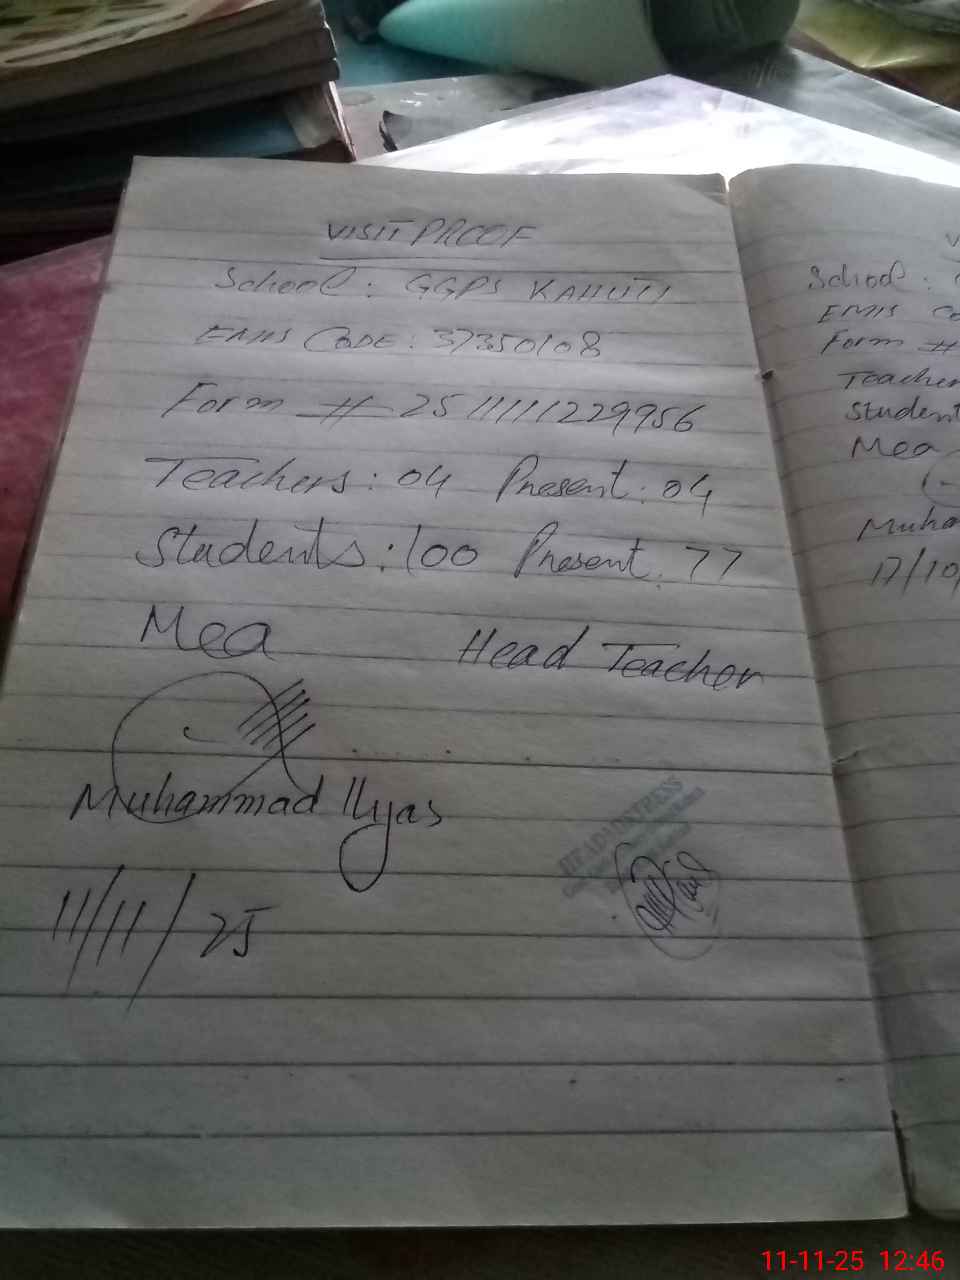 VISIT PROOF
School: GGPS KAHUTI
EMIS CODE: 37350108
Form # 2511111229956
Teachers: 04 Present: 04
Students: 100 Present: 77
Mea Head Teacher
Muhammad Ilyas
11/11/25
HEADMISTRESS
School:
EMIS
Form #
Teacher
Student
Mea
17/10/
11-11-25 12:46